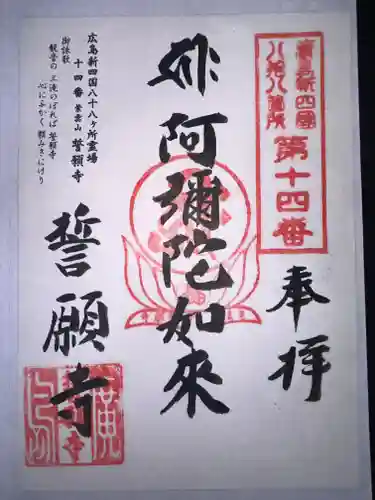 廣島新四國
八拾八箇所
第十四番
奉拝
阿彌陀如来
誓願寺
広島新四国八十八ヶ所霊場
十四番 紫雲山 誓願寺
御詠歌
観音の 三滝のぼれば 誓願寺
心にふかく 頼みきにけり